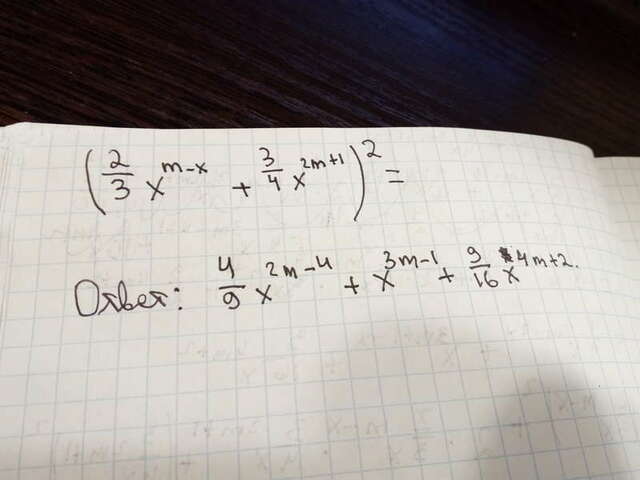 (2/3 x^(m-x) + 3/4 x^(2m+1))^2 =
Ответ: 4/9 x^(2m-4) + x^(3m-1) + 9/16 x^(4m+2).